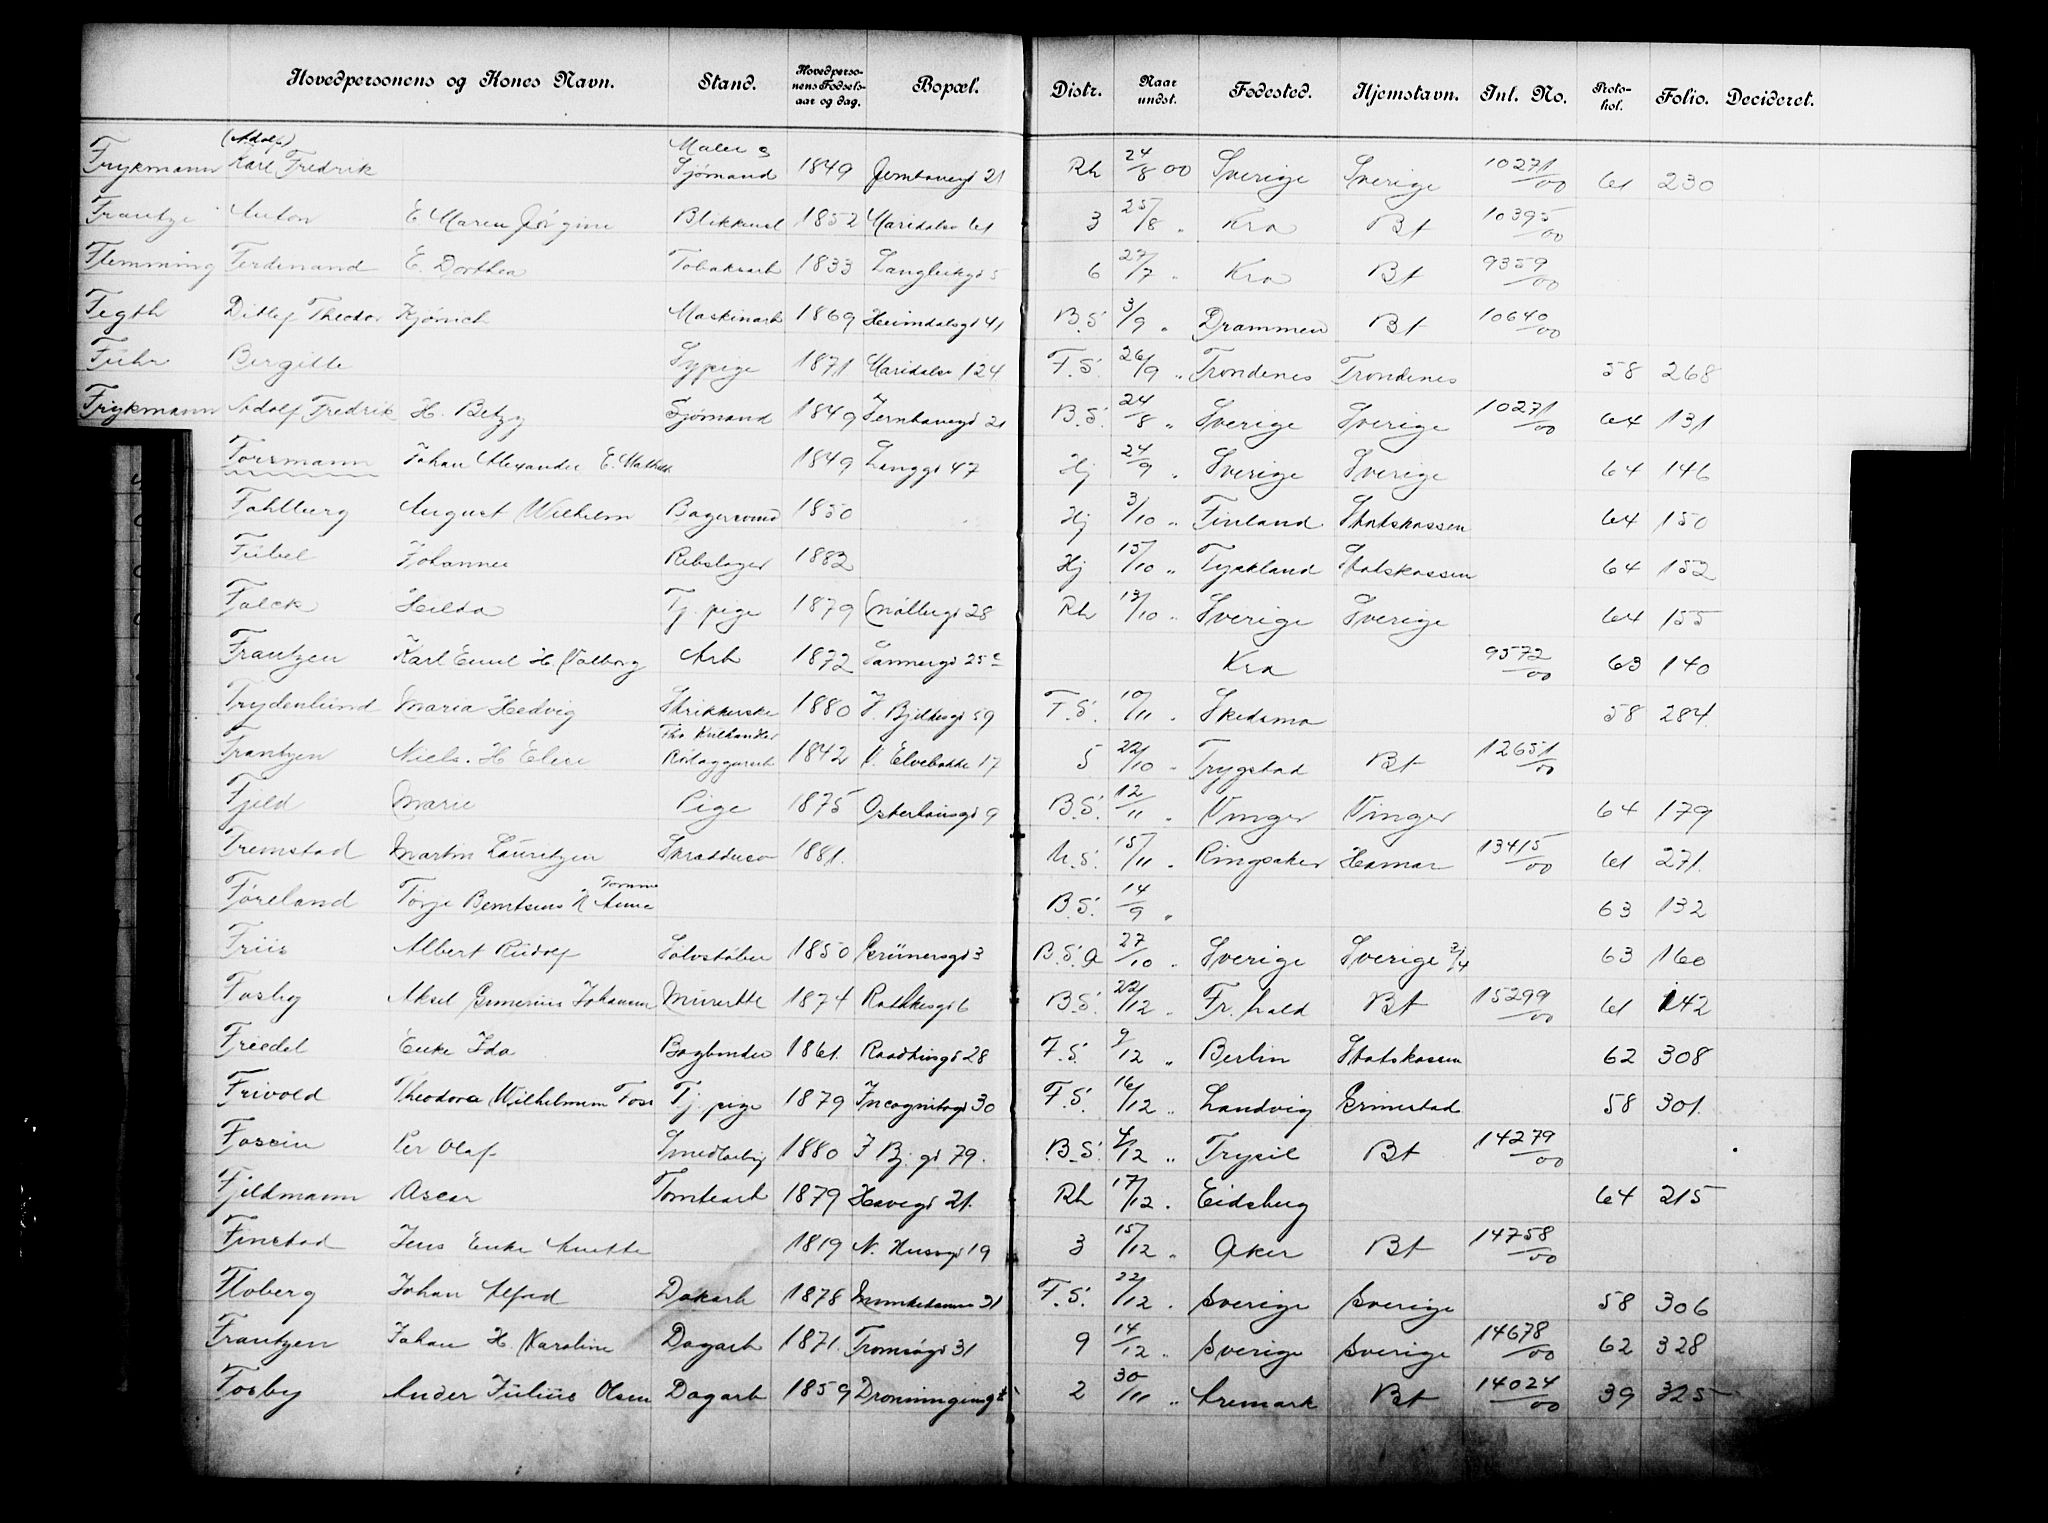 Hovedpersonens og Kones Navn. Stand. Hovedperso-nens Fødsels-aar og dag. Bopæl. Distr. Naar undst. Fødested. Hjemstavn. Inl. No. Proto-kol. Folio. Decideret.
Frykmann (Adolf) Karl Fredrik Maler & Sjømand 1849 Jernbanegd 21 Rh 24/8 00 Sverige Sverige 10271/00 61 230
Frantze Anton E. Maren Jørgine Blikkensl 1852 Maridalsv 61 3 25/8 " Kra Bt 10395/00
Flemming Ferdinand E. Dorthea Tobaksarb 1833 Langleikgd 5 6 27/7 " Kra Bt 9359/00
Fegth Ditlef Theodor Kjønich Maskinarb 1869 Heimdalsgd 41 B.S. 3/9 " Drammen Bt 10640/00
Führ Bergitte Sypige 1871 Maridalsv 124 F.S. 26/9 " Trondenes Trondenes 58 268
Frykmann Adolf Fredrik H. Betzy Sjømand 1849 Jernbanegd 21 B.S. 24/8 " Sverige Sverige 10271/00 64 131
Forsmann Johan Alexander E. Mathilde 1849 Langgd 47 Hj 24/9 " Sverige Sverige 64 146
Fahlburg August Wilhelm Bagersvend 1850 Hj 3/10 " Finland Statskassen 64 150
Fübel Johannes Rebslager 1882 Hj 15/10 " Tyskland Statskassen 64 152
Falck Hilda Tj. pige 1879 Møllergd 28 Rh 13/10 " Sverige Sverige 64 155
Frantzen Karl Emil H. Valborg Arb 1872 Sannergd 25 c Kra 9572/00 63 140
Frydenlund Maria Hedvig Strikkerske 1880 J. Bjelkesgd 59 F.S. 10/11 " Skedsmo 58 284
Frantzen Niels. H Elise 1842 N. Elvebakke 17 5 22/10 " Trygstad Bt 12651/00
Fjeld Marie Pige 1875 Osterhausgd 9 B.S. 12/11 " Vinger Vinger 64 179
Fremstad Martin Lauritzen Skræddersv 1881. U.S. 15/11 " Ringsaker Hamar 13415/00 61 271.
Føreland Torje Berntsens H Anne B.S. 14/9 " 63 132
Friis Albert Rudolf Sølvstøber 1850 Grünersgd 3 B.S.A 27/10 " Sverige Sverige 3/4 63 160
Fosby Aksel Gunerius Johannes Murerttl 1874 Rathkesgd 6 B.S. 22/12 " Fr. hald Bt 15299/00 61 142
Freedel Enke Ida Bogbinder 1861. Raadhusgd 28 F.S. 9/12 " Berlin Statskassen 62 308
Frivold Theodora Wilhelmine Foss Tj. pige 1879 Incognitogd 30 F.S. 16/12 " Landvig Grimstad 58 301.
Fossin Per Olaf Smedlærling 1880 J Bj. gd 79. B.S. 4/12 " Trysil Bt 14279/00
Fjeldmann Oscar Tomtearb 1879 Havegd 21. Rh 17/12 . Eidsberg 64 215
Finstad Jens Enke Anette 1819 N. Husvgd 19 3 15/12 " Aker Bt 14758/00
Floberg Johan Alfred Dokarb 1878 Munkedamsv 31 F.S. 22/12 . Sverige Sverige 58 306
Frantzen Johan H. Karoline Dagarb 1871. Tromsøgd 31 9 14/12 " Sverige Sverige 14678/00 62 328
Fosby Ander Julius Olsen Dagarb 1859 Dronningensgd 2 30/11 " Aremark Bt 14024/00 39 325